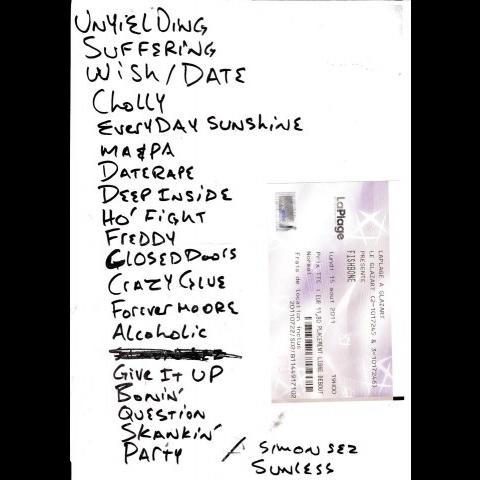 UNYIELDING
SUFFERING
WISH/DATE
CHOLLY
EVERYDAY SUNSHINE
MA & PA
DATERAPE
DEEP INSIDE
HO' FIGHT
FREDDY
CLOSED DOORS
CRAZY GLUE
FOREVER MOORE
ALCOHOLIC
GIVE IT UP
BONIN'
QUESTION
SKANKIN'
PARTY / SIMON SEZ
SUNLESS
LaPlage
LAPLAGE A GLAZART
LE GLAZART (2-1017245 & 3-1017246)
PRESENTE
FISHBONE
Lundi 15 aout 2011 19H00
Prix TTC : EUR 11,80 PLACEMENT LIBRE DEBOUT
Normal
Frais de location inclus